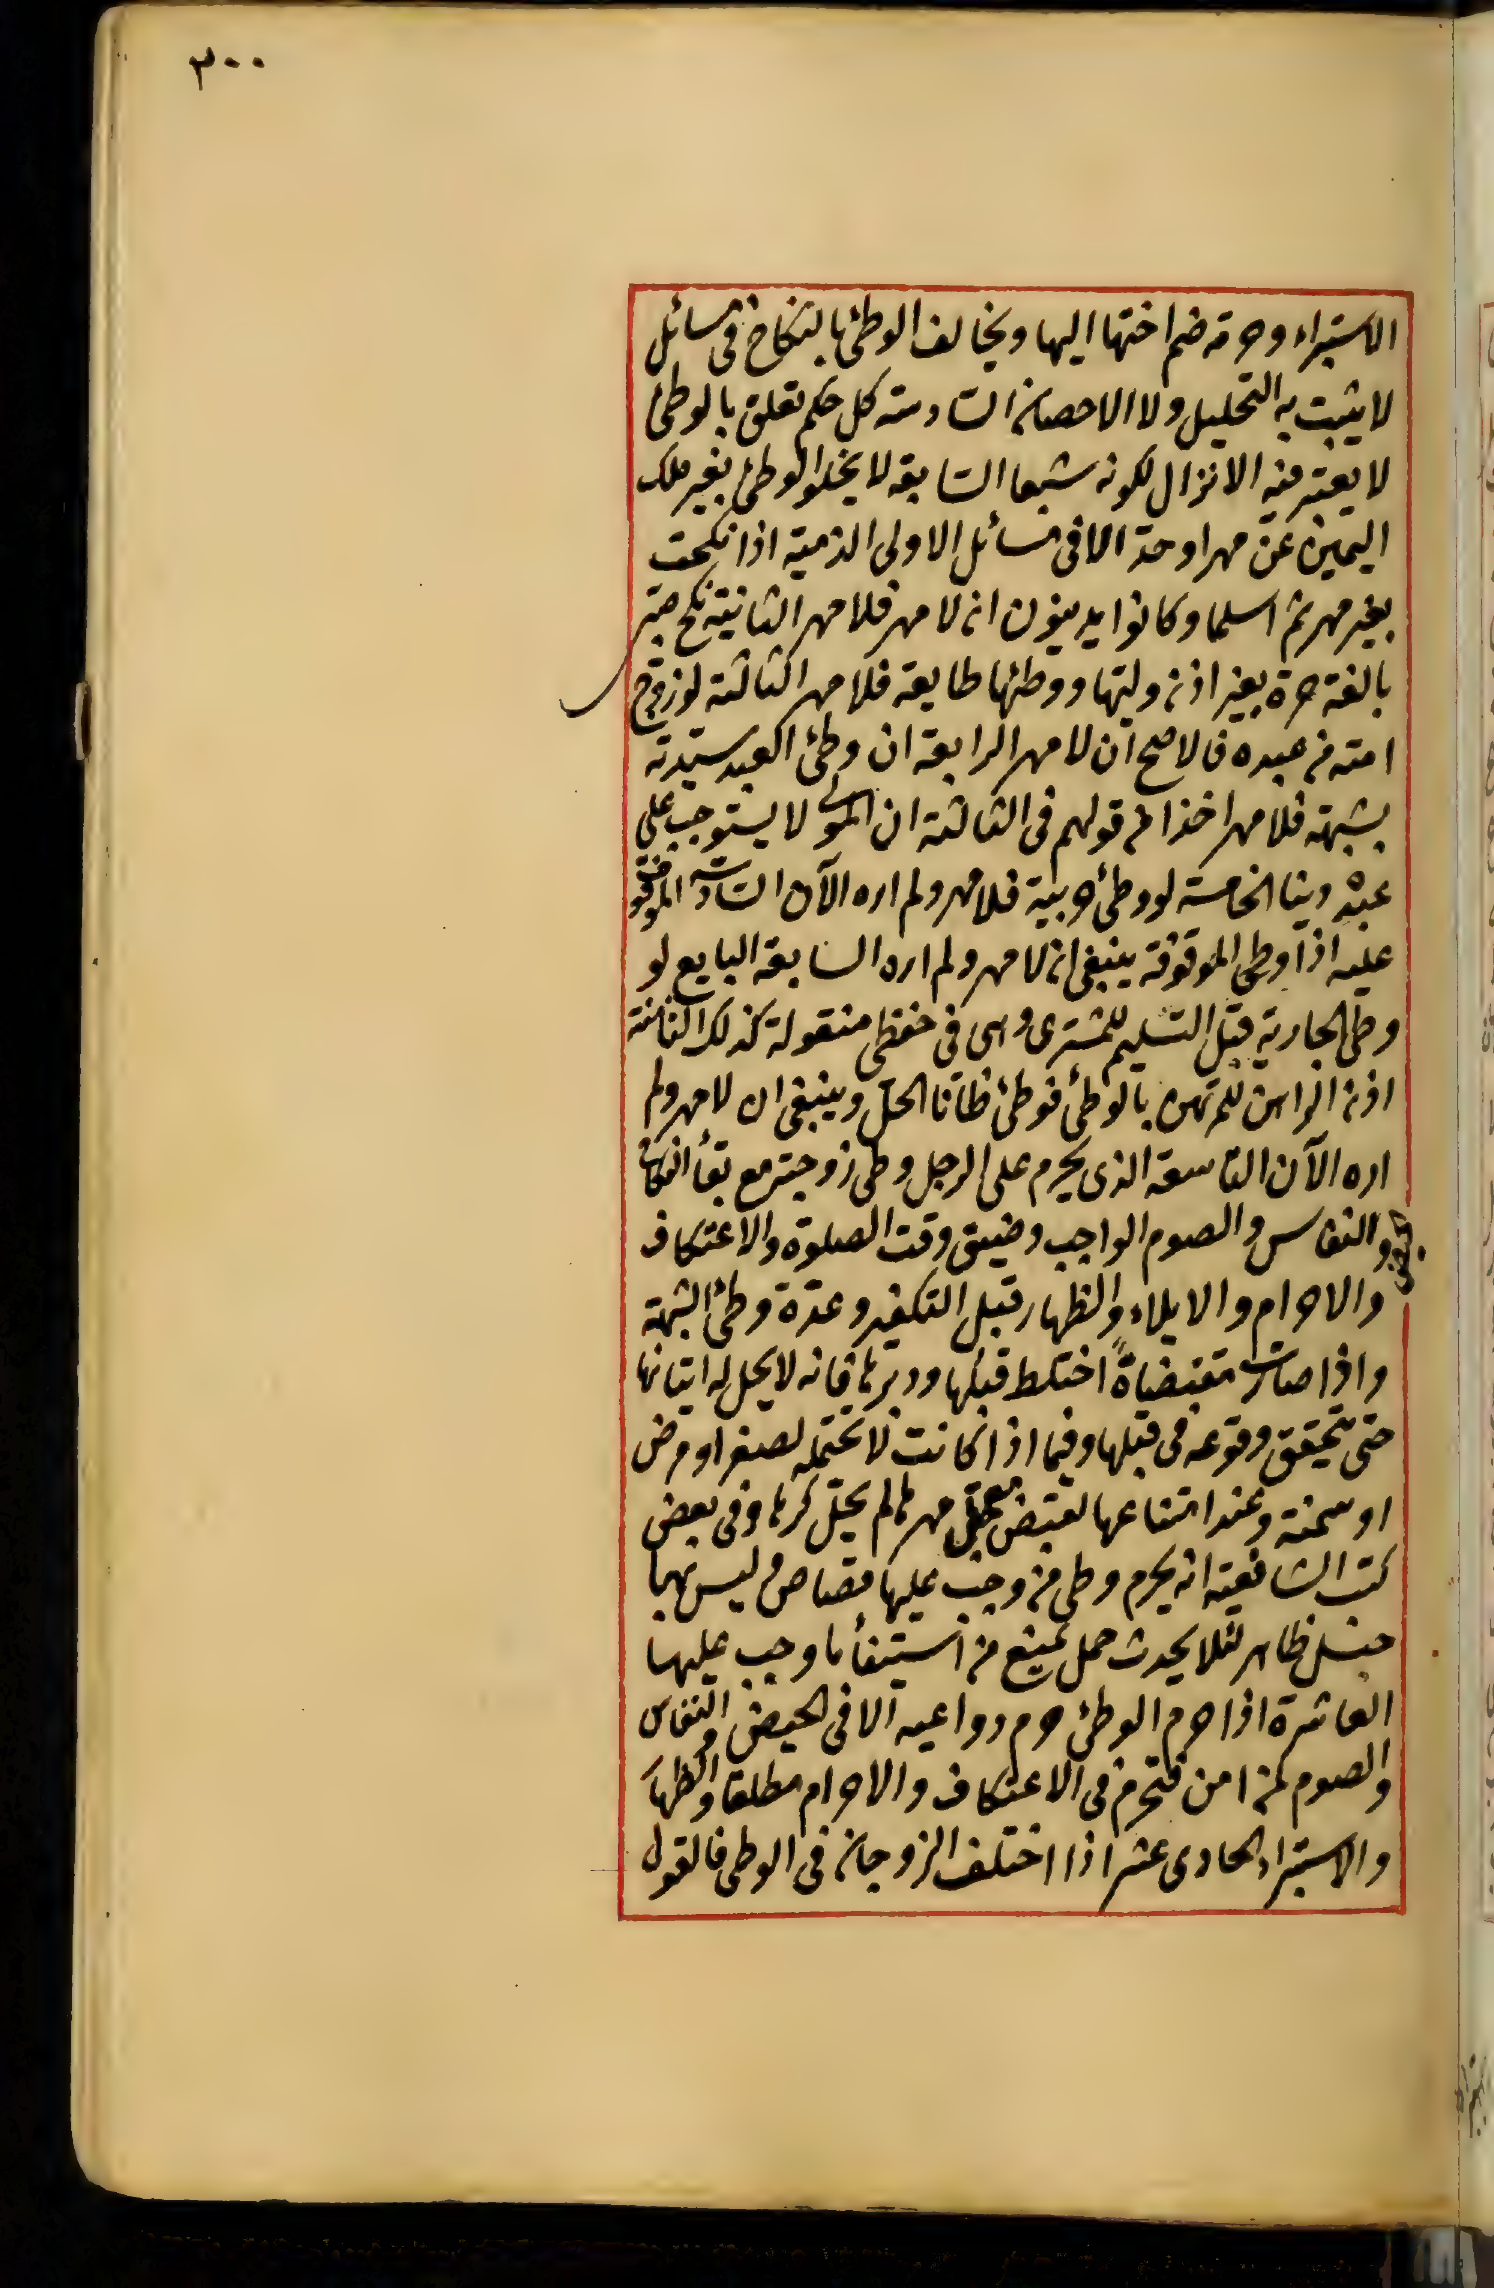 ٣٠٠
الاستبراء وحرمة ضم اختها اليها ويخالف الوطئ بالنكاح فى مسائل
لا يثبت به التحليل ولا الاحصان السادسة كل حكم تعلق بالوطئ
لا يعتبر فيه الانزال لكونه شبعا السابعة لا يخلو الوطئ بغير ملك
اليمين عن مهر او حد الا فى مسائل الاولى الذمية اذا نكحت
بغير مهر ثم اسلما وكانوا يدينون ان لا مهر فلا مهر الثانية نكح صبى
بالغة حرة بغير اذن وليها ووطئها طايعة فلا مهر الثالثة لو زوج
امته من عبده فالاصح ان لا مهر الرابعة ان وطئ العبد سيدته
بشبهة فلا مهر اخذا من قولهم فى الثالثة ان المولى لا يستوجب على
عبده دينا الخامسة لو وطئ حربية فلا مهر ولم اره الآن السادسة الموقوفة
عليه اذا وطئ الموقوفة ينبغى ان لا مهر ولم اره السابعة البايع لو
وطئ الجارية قبل التسليم للمشترى وهى فى حفظى منقولة كذلك الثامنة
اذن الراهن للمرتهن بالوطئ فوطئ ظانا الحل وينبغى ان لا مهر ولم
اره الآن التاسعة الذى يحرم على الرجل وطئ زوجته مع بقأ النكاح
الحيض
والنفاس والصوم الواجب وضيق وقت الصلوة والاعتكاف
والاحرام والايلاء والظهار قبل التكفير وعدة وطئ الشبهة
واذا صارت مفضاة اختلط قبلها ودبرها فانه لا يحل له اتيانها
حتى يتحقق وقوعه فى قبلها وفيما اذا كانت لا تحتمله لصغر او مرض
او سمنة وعند امتناعها لقبض معجل مهرها لم يحل كرها وفى بعض
كتب الشافعية انه يحرم وطئ من وجب عليها قصاص وليس بها
حبل ظاهر لئلا يحدث حمل يمنع من استيفأ ما وجب عليها
العاشرة اذا حرم الوطئ حرم دواعيه الا فى الحيض والنفاس
والصوم لمن امن فتحرم فى الاعتكاف والاحرام مطلقا والظهار
والاستبراء الحادى عشر اذا اختلف الزوجان فى الوطئ فالقول